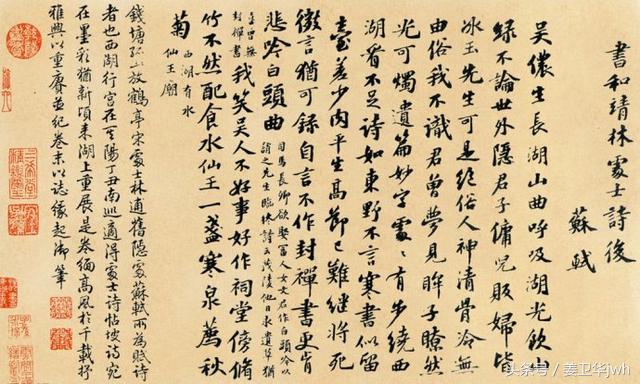 書和靖林處士詩後
蘇軾
吳儂生長湖山曲呼吸湖光飲山
綠不論世外隱君子傭兒販婦皆
冰玉先生可是絕俗人神清骨冷無
由俗我不識君曾夢見眸子瞭然
光可燭遺篇妙字處處有步繞西
湖看不足詩如東野不言寒書似留
臺差少肉平生高節已難繼將死
微言猶可錄自言不作封禪書更肯
悲吟白頭曲
司馬長卿欲娶富人女文君作白頭吟以
誚之先生臨終詩云茂陵他日求遺草猶
喜曾無
封禪書
我笑吳人不好事好作祠堂傍脩
竹不然配食水仙王一盞寒泉薦秋
菊
西湖有水
仙王廟
錢塘孤山放鶴亭宋處士林逋舊隱處蘇軾所為賦詩
者也西湖行宮在其陽丁丑南巡適得處士詩帖坡詩宛
在墨彩猶新頃來湖上重展是卷緬高風於千載抒
雅興以重賡並紀卷末以誌緣起御筆
头条号 / 姜卫华jwh